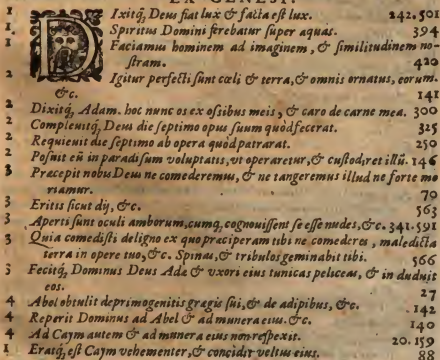 EX GENESI.
1 DIxitq́; Deus fiat lux & facta est lux. 242.501
1. Spiritus Domini ferebatur super aquas. 394
1 Faciamus hominem ad imaginem, & similitudinem no-
stram. 420
2 Igitur perfecti sunt cœli & terra, & omnis ornatus, eorum.
&c. 141
2 Dixitq́; Adam. hoc nunc os ex ossibus meis, & caro de carne mea. 300
2 Complevitq́; Deus die septimo opus suum quòd fecerat. 325
2 Requievit die septimo ab opera quòd patrarat. 250
2 Posuit eũ in paradisum voluptatis, vt operaretur, & custodiret illũ. 146
3 Præcepit nobis Deus ne comederemus, & ne tangeremus illud ne forte mo
riamur. 70
3 Eritis sicut dij, &c. 563
3 Aperti sunt oculi amborum, cumq́; cognouissent se esse nudos, &c. 341.591
3 Quia comedisti de ligno ex quo præciperam tibi ne comederes, maledicta
terra in opere tuo, &c. Spinas, & tribulos geminabit tibi. 566
3 Fecitq́; Dominus Deus Adæ & vxori eius tunicas peliceas, & induduit
eos. 27
4 Abel obtulit de primogenitis gregis sui, & de adipibus, &c. 142
4 Reperit Dominus ad Abel & ad munera eius. &c. 140
4 Ad Caym autem & ad munera eius non respexit. 20.159
1 Eratq́; est Caym vehementer, & concidit veltus eius. 88